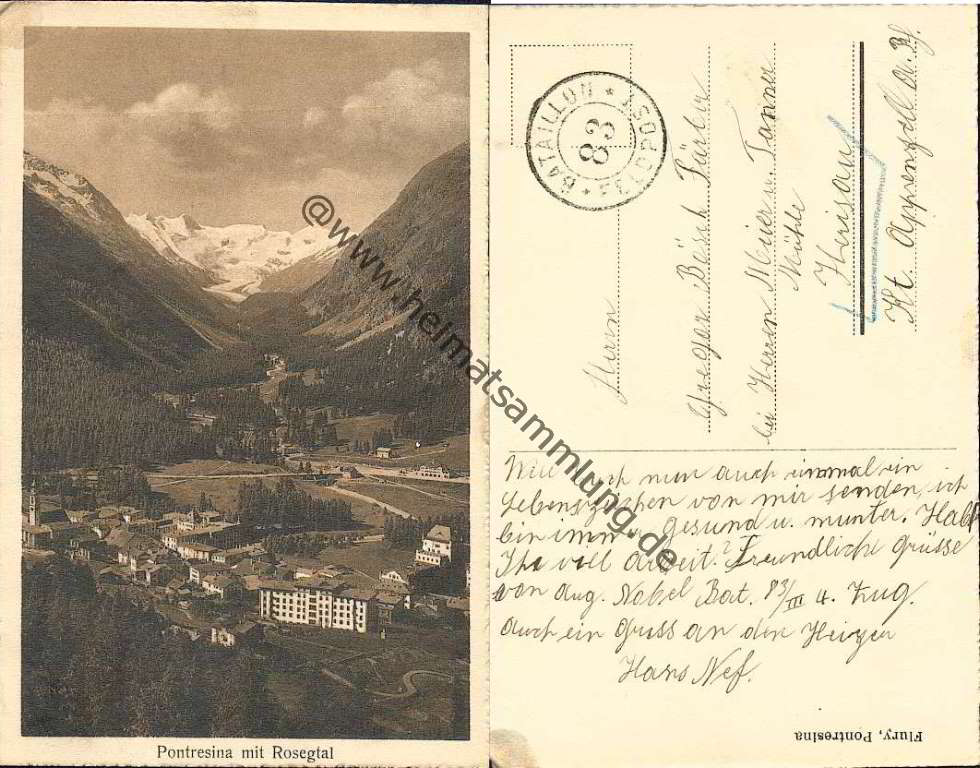 Pontresina mit Rosegtal
@www.heimatsammlung.de
BATAILLON * FELDPOST *
83
Herrn
Gregor Bösch Färber
bei Herrn Meier u. Tanner
Mühle
Herisau
Kt. Appenzell
Will nun auch einmal ein
Lebenszeichen von mir senden, ich
bin gesund u. munter. Habt
Ihr viel arbeit? Freundliche grüsse
von Aug. Nobel Bat. 83/III 4. Zug.
auch ein gruss an den Heizer
Hans Nef.
Flury, Pontresina